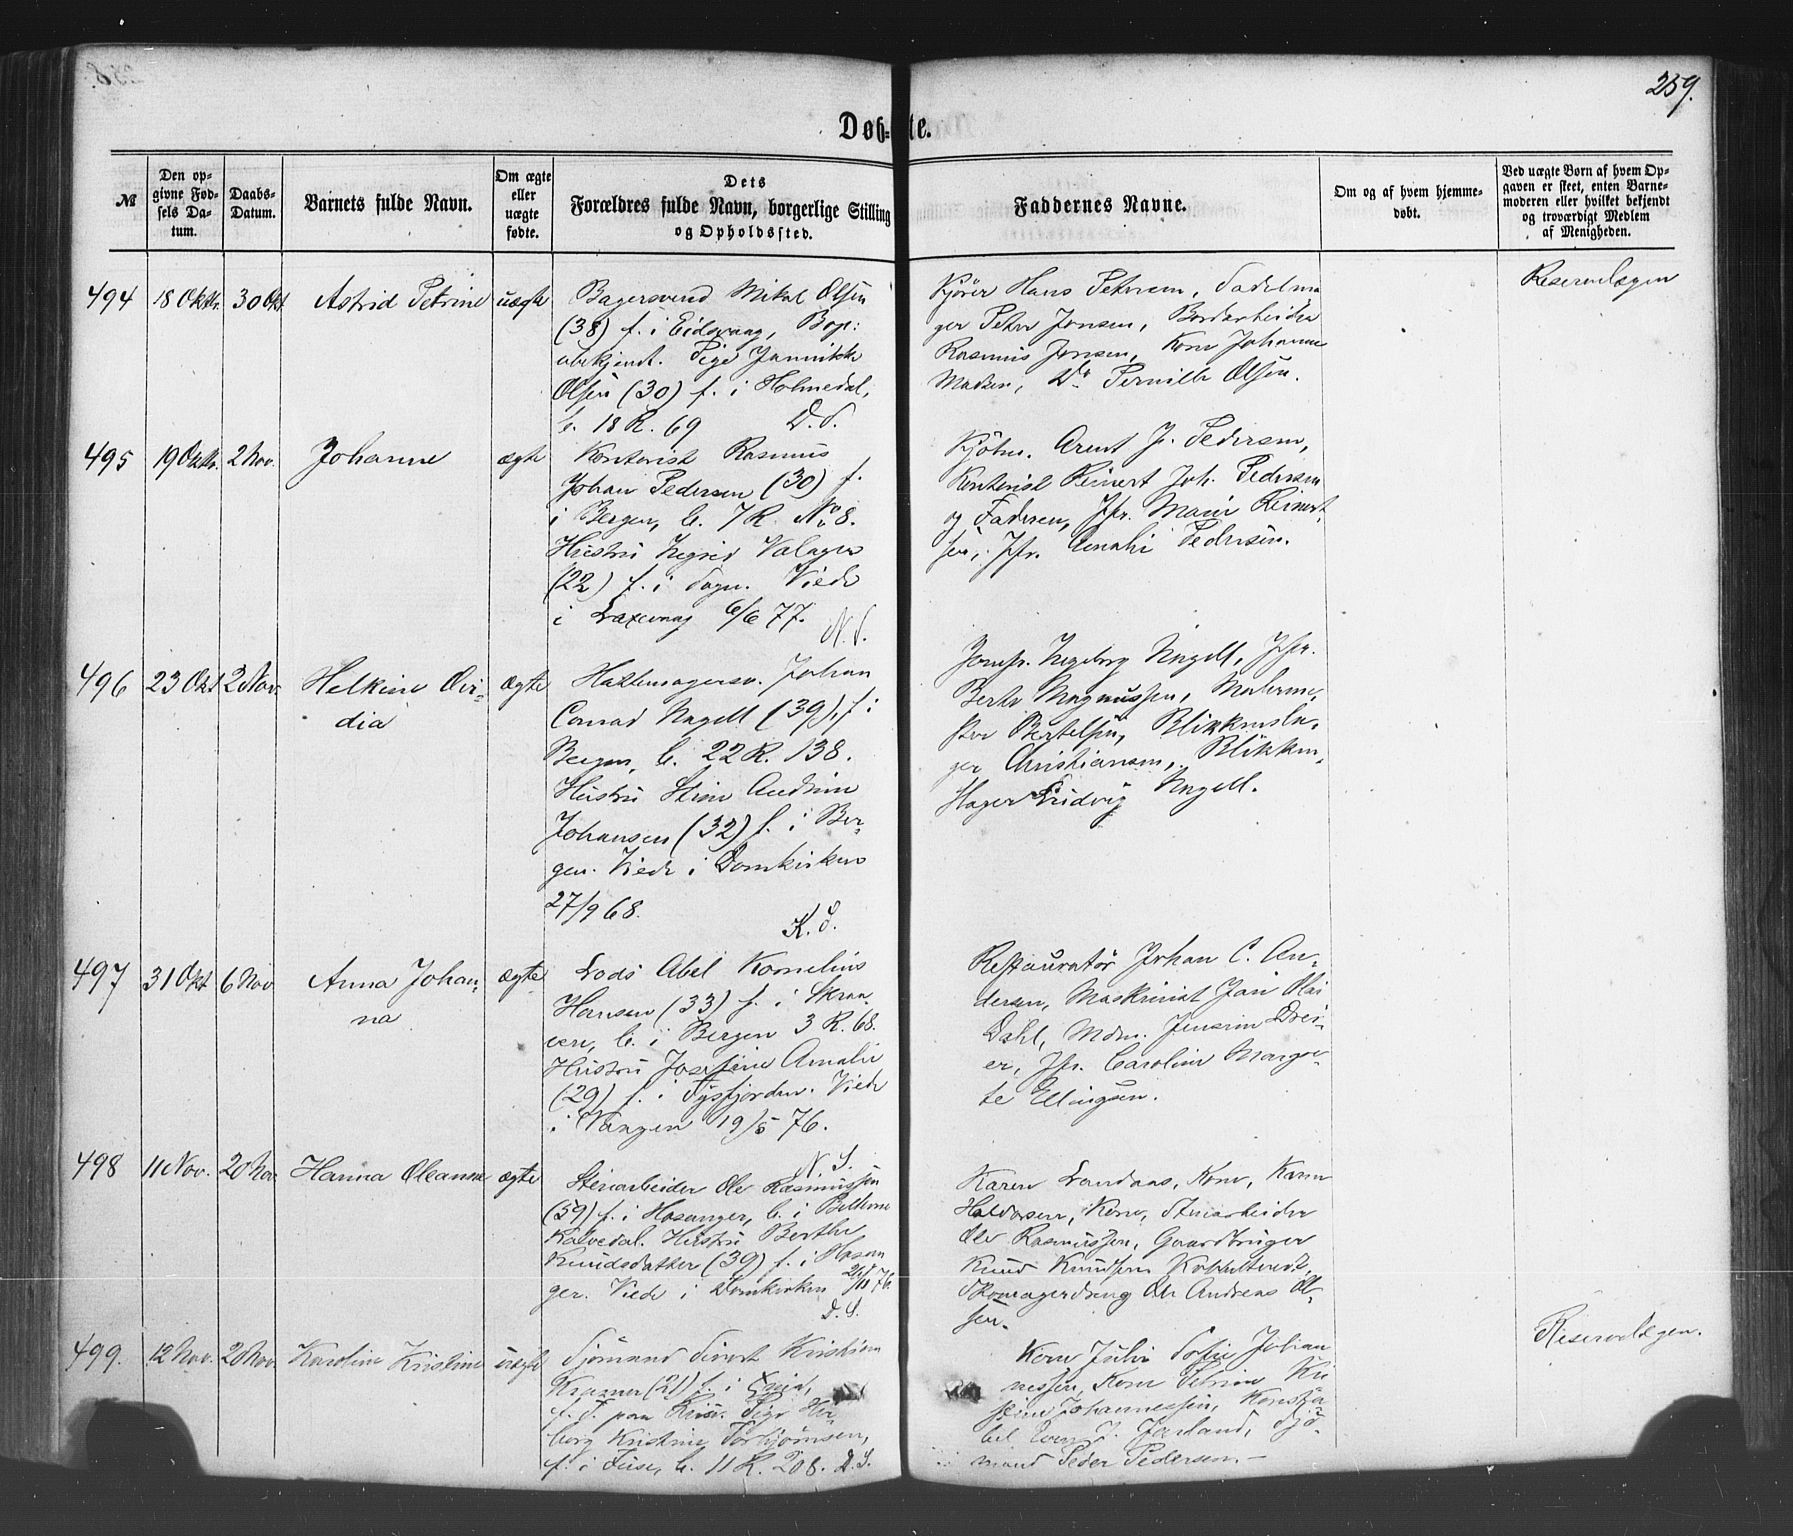 259.
Døb=te.
№
Den opgivne Fødsels Datum.
Daabs-Datum.
Barnets fulde Navn.
Om ægte eller uægte fødte.
Dets Forældres fulde Navn, borgerlige Stilling og Opholdssted.
Faddernes Navne.
Om og af hvem hjemmedøbt.
Ved uægte Børn af hvem Opgaven er skeet, enten Barnemoderen eller hvilket bekjendt og troværdigt Medlem af Menigheden.
494 18 Oktbr. 30 Okt Astrid Petrine uægte
Bagersvend Mikal Olsen
(38) f. i Eidsvaag, Bop:
ubekjendt. Pige Jannikke
Olsen (30) f. i Holmedal,
b. 18 R. 69 D.S.
Kjører Hans Petersen, Sadelma
ger Peter Jonsen, Bordarbeider
Rasmus Jensen, Kone Johanne
Madsen, Do Pernille Olsen.
Reservelægen
495 19 Oktbr. 2 Nov. Johanne ægte
Kontorist Rasmus
Johan Pedersen (30) f.
i Bergen, b. 7 R. No 8.
Hustru Ingrid
(22) f. i Sogn. Viede
i Laxevaag 6/6 77.
N.S.
Kjøbm. Arent J. Pedersen,
Kontorist Reinert Joh. Pedersen
og Faderen, Jfr. Marie Reinert
sen, Jfr. Amalie Pedersen.
496 23 Okt 2 Nov. Helkine Ovi-
dia ægte
Hattemagersv. Johan
Conrad Nagell (39), f. i
Bergen, b. 22 R. 138.
Hustru Stine Andrine
Johansen (32) f. i Ber-
gen. Viede i Domkirken
27/9 68.
K.S.
Jomfr. Ingeborg Nagell, Jfr.
Berte Magnussen, Malerme-
ster Bertelsen, Blikkensla-
ger Christiansen, Blikken-
slager Ludvig Nagell.
497 31 Okt 6 Nov Anna Johan-
na ægte
Lods Abel Kornelius
Hansen (33) f. i Skraa-
ven, b. i Bergen 3 R. 68.
Hustru Josefine Amalie
(29) f. i Tysfjorden. Viede
i Vangen 19/5 76.
N.S.
Restauratør Johan C. An-
dersen, Maskinist Jan
Dahl, Mdm. Jensine Drei-
er, Jfr. Caroline Margre-
te Ellingsen.
498 11 Nov. 20 Nov. Hanna Oleanne ægte
Stenarbeider Ole Rasmussen
(59) f. i Hosanger, b. i
Kalvedal. Hustru Berthe
Knudsdatter (39) f. i Hosan
ger. Viede i Domkirken 76.
D.S.
Karen Landaas, Kone, Karen
Haldorsen, Kone, Stenarbeider
Ole Rasmussen, Gaardbruger
Knud Knudsen
Skomagerdreng Ole Andreas Ol-
sen.
499. 12 Nov. 20 Nov. Karoline Kristine uægte
Sjømand Sivert Kristian
Kramer (21) b. i
f. T. paa Reise. Pige Her-
borg Kristine Torbjørnsen,
f. i Fuse, b. 11 R. 208. D.S.
Kone Julie Sofie Johan
nessen, Kone Petrine Kri
stine Johannessen, Konstja-
bel Iver J. Jarland, Sjø
mand Peder Pedersen.
Reservelægen.